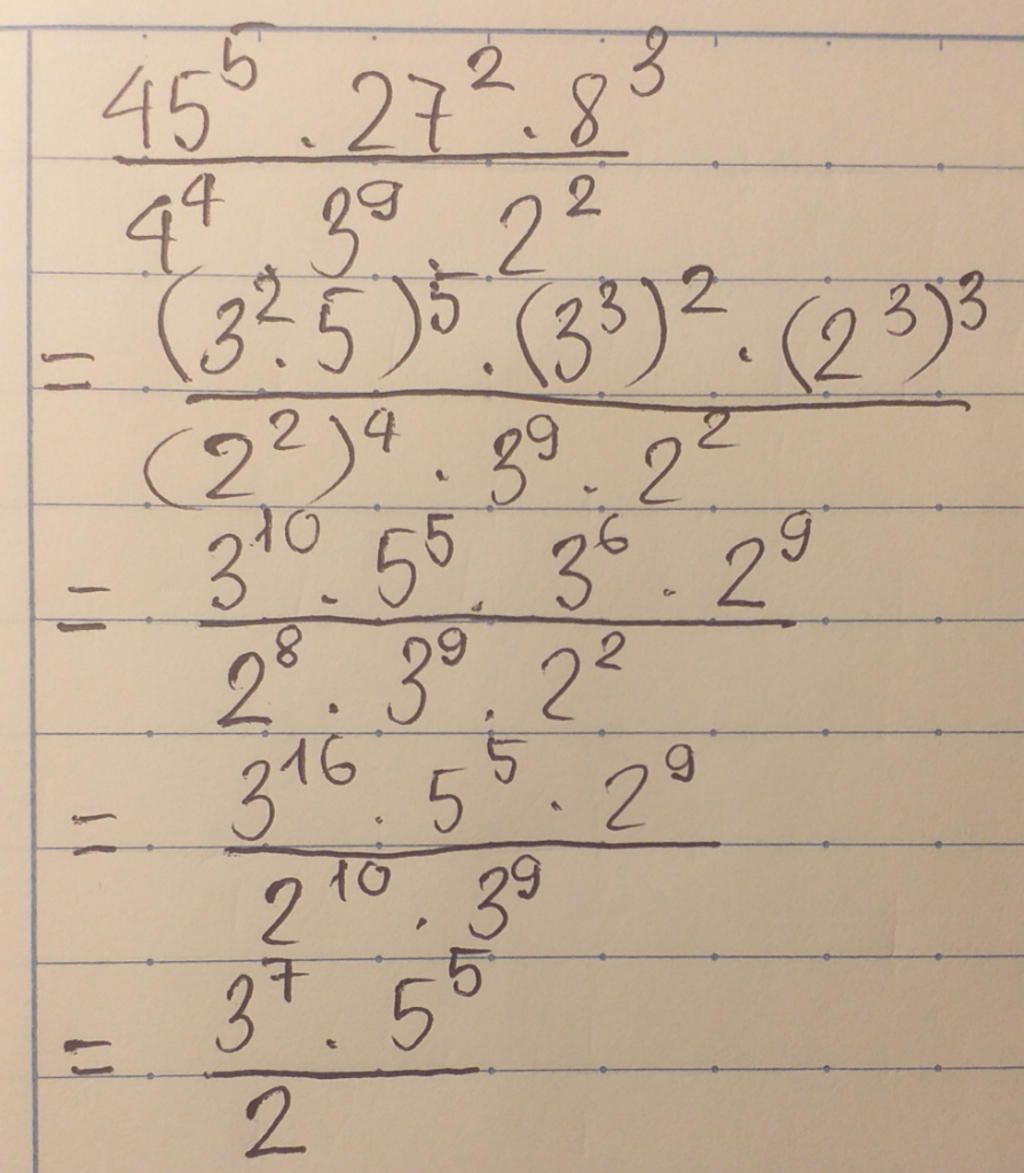 45⁵ . 27² . 8³
4⁴ . 3⁹ . 2²
= (3² . 5)⁵ . (3³)² . (2³)³
(2²)⁴ . 3⁹ . 2²
= 3¹⁰ . 5⁵ . 3⁶ . 2⁹
2⁸ . 3⁹ . 2²
= 3¹⁶ . 5⁵ . 2⁹
2¹⁰ . 3⁹
= 3⁷ . 5⁵
2